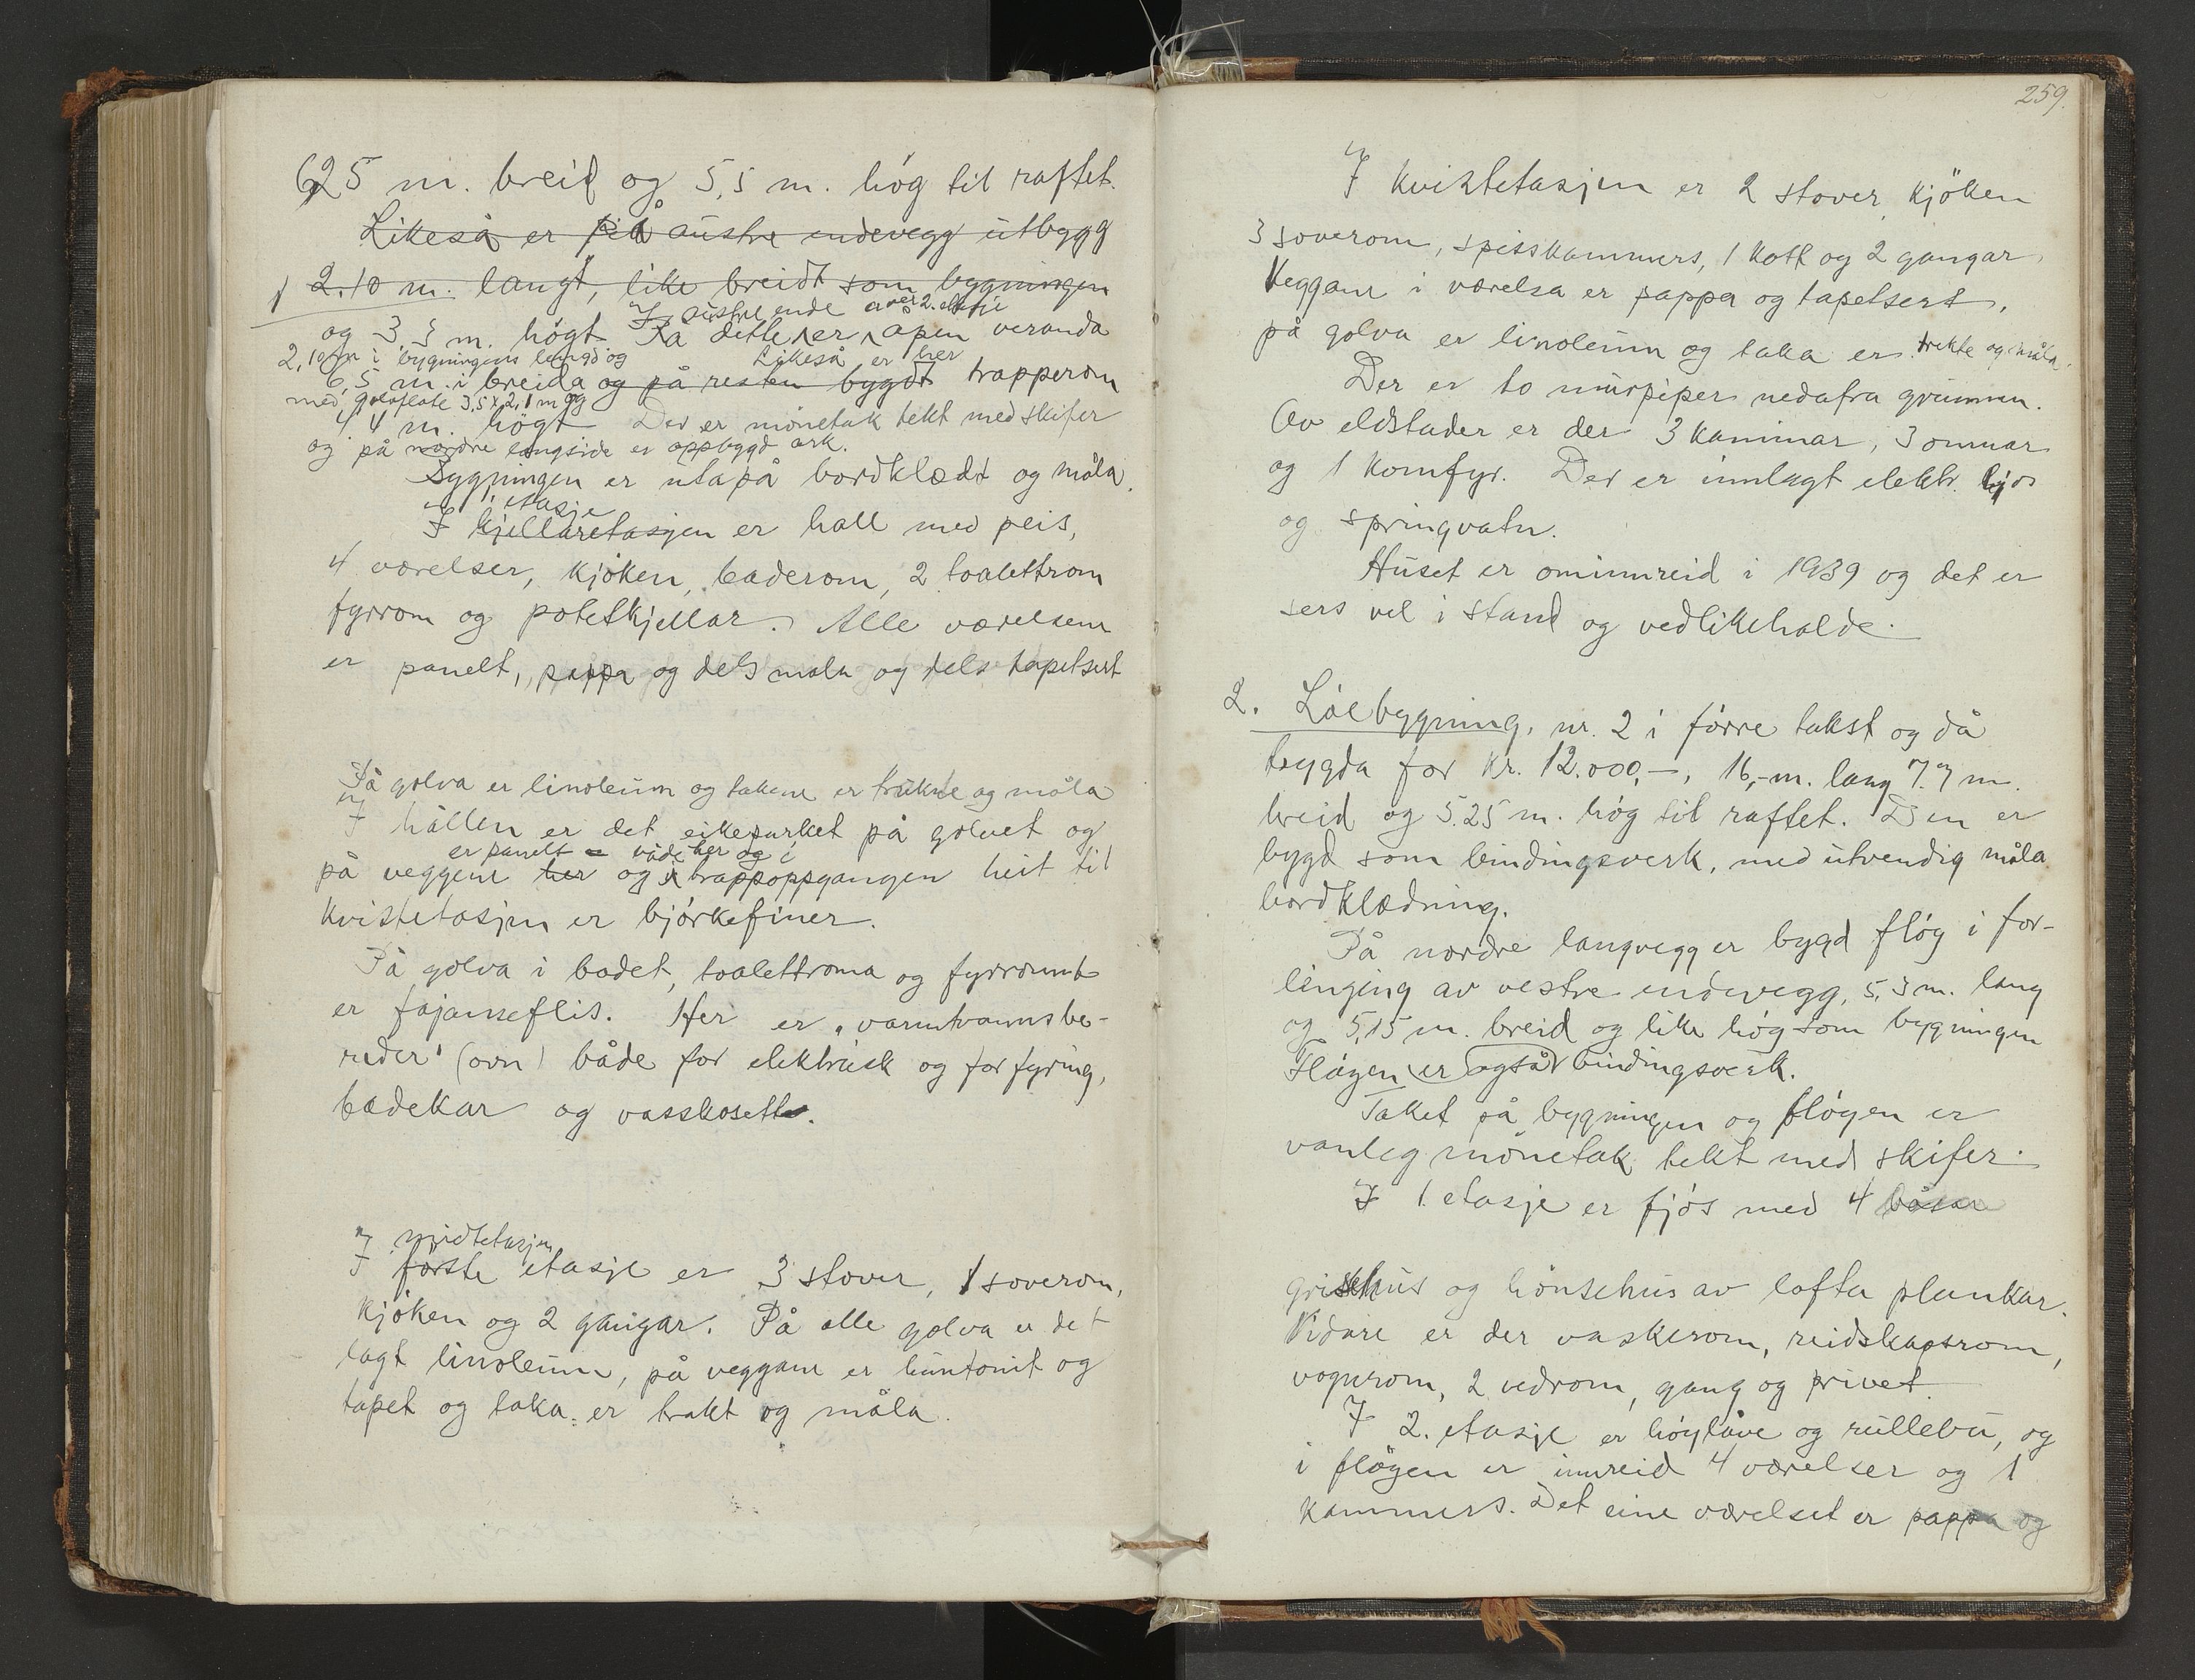 625 m. breid og 5,5 m. høg til raftet.
Likeså er på austre endevegg utbygg
2.10 m. langt, like breidt som bygningen
I austre ende over 2. etasje
og 3.5 m. høgt På dette er åpen veranda
2,10 m i bygningens lengd og Likeså er her
6,5 m. i breida og på resten bygdt trapperom
med golvflate 3,5 x 2,1 m og
4 m. høgt Der er mønetak tekt med skifer
og på nordre langside er oppbygd ark.
Bygningen er utapå bordklædt og måla.
I 1 etasje
I kjellaretasjen er hall med peis,
4 værelser, kjøken, baderom, 2 toalettrom
fyrrom og potetkjellar. Alle værelsene
er panelt, pappa og dels mala og dels tapetsert
På golva er linoleum og takene er trukne og måla
I hallen er det eikeparket på golvet og
er panelt både her og i
på veggene her og i trappoppgangen heit til
kvistetasjen er bjørkefiner.
På golva i badet, toalettroma og fyrrommet
er fajanseflis. Her er "varmtvannsbe-
reder" (ovn) både for elektrisk og for fyring,
badekar og vassklosett.
I midtetasjen
I første etasje er 3 stover, 1 soverom,
kjøken og 2 gangar. På alle golva er det
lagt linoleum, på veggane er huntonit og
tapet og taka er trakt og måla.
259.
I kvistetasjen er 2 stover, kjøken
3 soverom, spisskammers, 1 kott og 2 gangar,
Veggane i værelsa er pappa og tapetsert,
på golva er linoleum og taka er trekte og måla.
Der er to murpiper nedafra grunnen.
Av eldstader er der 3 kaminar, 3 omnar
og 1 komfyr. Der er innlagt elektr. ljos
og springvatn.
Huset er ominnreid i 1939 og det er
sers vel i stand og vedlikehalde.
2. Løebygning, nr. 2 i førre takst og då
trygda for kr. 12.000,-, 16,- m. lang 7.7 m.
breid og 5.25 m. høg til raftet. Den er
bygd som bindingsverk, med utvendig måla
bordklædning.
På nordre langvegg er bygd fløy i for-
lenging av vestre endevegg, 5,3 m. lang
og 5,15 m. breid og like høg som bygningen
Fløgen er også bindingsverk.
Taket på bygningen og fløgen er
vanleg mønetak tekt med skifer.
I 1. etasje er fjøs med 4 båsar
grisehus og hønsehus av lofta plankar.
Vidare er der vaskerom, reidskapsrom,
vognrom, 2 vedrom, gang og privet.
I 2. etasje er høylåve og rullebu, og
i fløgen er innreid 4 værelser og 1
kammers. Det eine værelset er pappa og